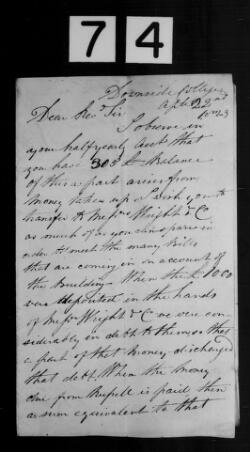 74
Downside College
Apl 22nd
1823
Dear Revd Sir
I observe in
your half yearly Acct that
you have 305 £ Balance
of this a part arises from
money taken up. I wish you to
transfer to Messrs Wright & Co
as much of as you can spare in
order to meet the many Bills
that are coming in on account of
the Building. When the £ 1000
was deposited in the hands
of Messrs Wright & Co we were con-
siderably in debt to them, so that
a part of that money discharged
that debt. When the money
due from Mussell is paid then
a sum equivalent to that